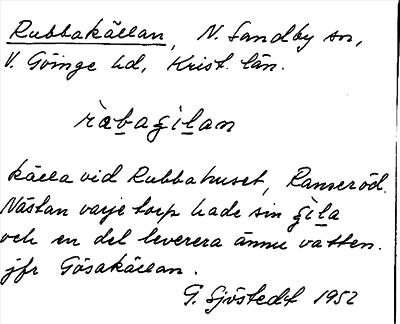 Rubbakällan, N. Sandby sn,
V. Göinge hd, Krist. län.
ràbagilan
källa vid Rubbahuset, Ranseröd.
Nästan varje torp hade sin gila
och en del leverera ännu vatten.
jfr Gösakällan.
G. Sjöstedt 1952